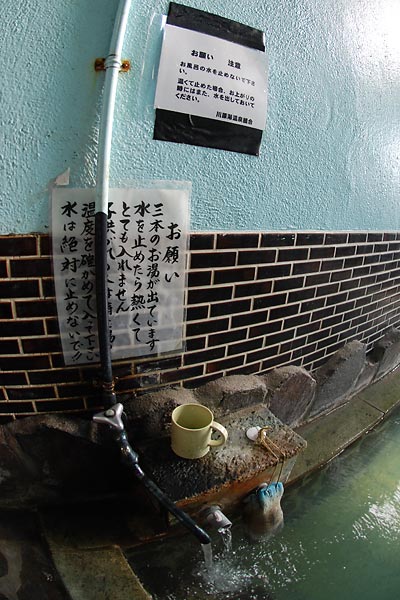 お願い　注意
お風呂の水を止めないで下さ
い。
温くて止めた場合、お上がりの
時にはまた、水を出しておいて
ください。
お願い
三本のお湯が出ています
水を止めたら熱くて
とても入れません
温度を確かめて入て下さい
水は絶対に止めないで!!